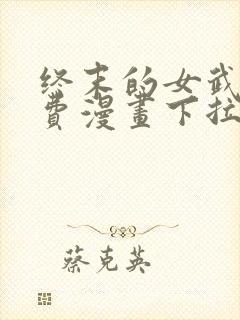 终末的女武
费漫畫下拉
蔡克英